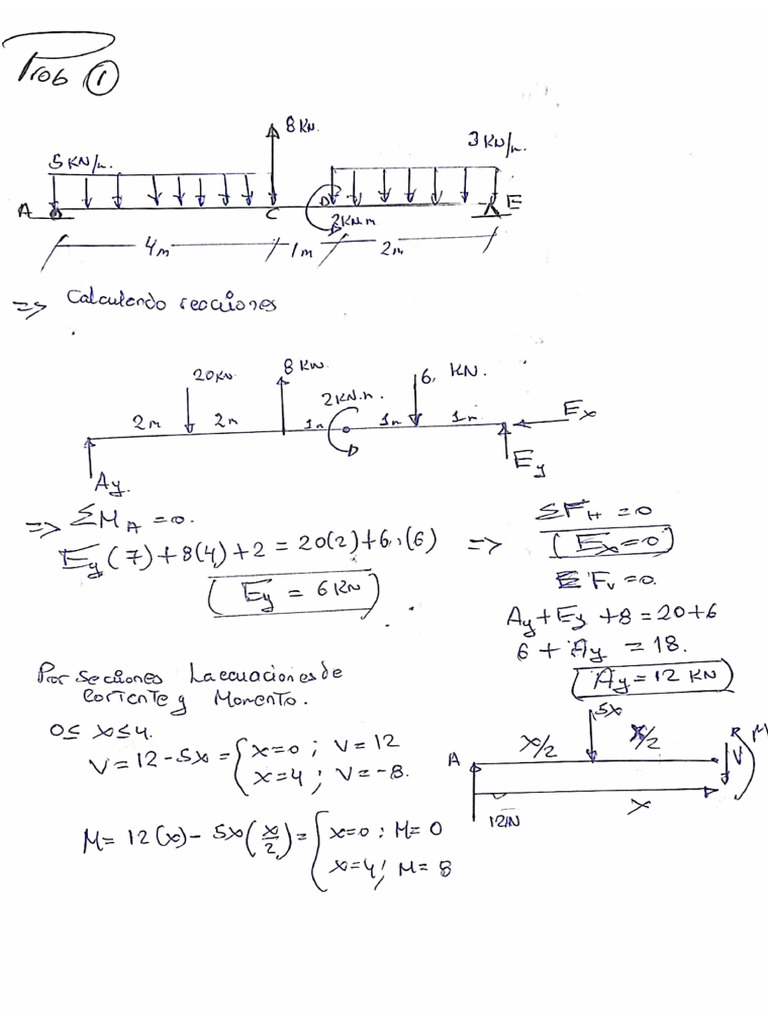 Prob ①
8 KN.
5 KN/m.
3 KN/m.
A
C
D
E
2KN.m
4m
1m
2m
=> Calculendo reacciones
20KN
8 KN
2KN.m.
6. KN.
2m
2m
1m
1m
1m
Ex
Ay.
Ey
=> ΣM_A = 0.
Ey(7)+8(4)+2 = 20(2)+6.(6) =>
Ey = 6 KN
ΣF_H = 0
Ex = 0
ΣF_v = 0.
Ay + Ey + 8 = 20+6
6 + Ay = 18.
Ay = 12 KN
Por Secciones La ecuaciones de
Cortente y Momento.
0 ≤ x ≤ 4.
V = 12 - 5x = { x=0 ; V=12
x=4 ; V=-8.
M = 12(x) - 5x(x/2) = { x=0 ; M=0
x=4 ; M=8
5x
x/2
x/2
A
M
V
x
12KN